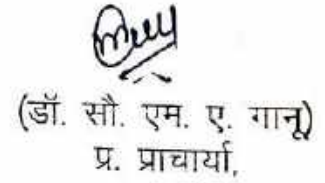 (डॉ. सौ. एम. ए. गानू)
प्र. प्राचार्या,